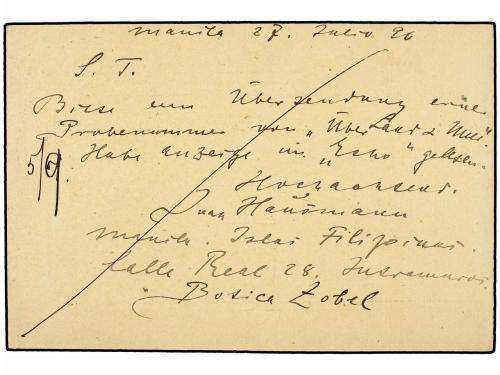 Manila 27. Julio 96
S. T.
Bitte um Übersendung einer
Probenummer von „Über Land & Meer".
Habe Anzeige im „Echo" gelesen.
5/9.
Hochachtend.
Juan Hausmann
Manila. Islas Filipinas.
Calle Real 28. Intramuros.
Botica Zobel